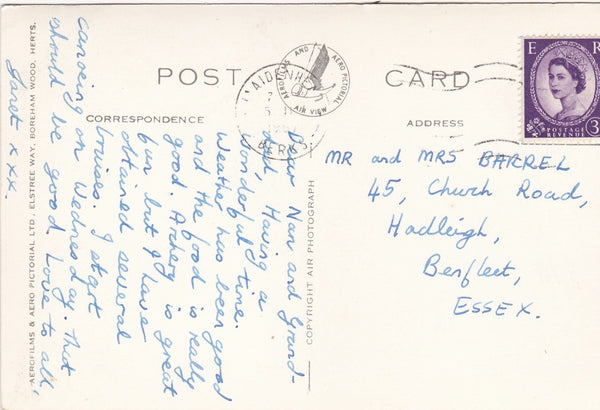 POST CARD
CORRESPONDENCE
ADDRESS
AEROFILMS AND AERO PICTORIAL
AIR VIEW
MAIDENHEAD
BERKS
E R
POSTAGE
REVENUE
3
Dear Nan and Grand-
dad, Having a
wonderful time.
Weather has been good
and the food is really
good. Archery is great
fun but I have
obtained several
bruises. I start
canoeing on Wednesday. That
should be good. Love to all,
Janet xxx.
MR and MRS BARREL
45, Church Road,
Hadleigh,
Benfleet,
ESSEX.
COPYRIGHT AIR PHOTOGRAPH
AEROFILMS & AERO PICTORIAL LTD., ELSTREE WAY, BOREHAM WOOD, HERTS.